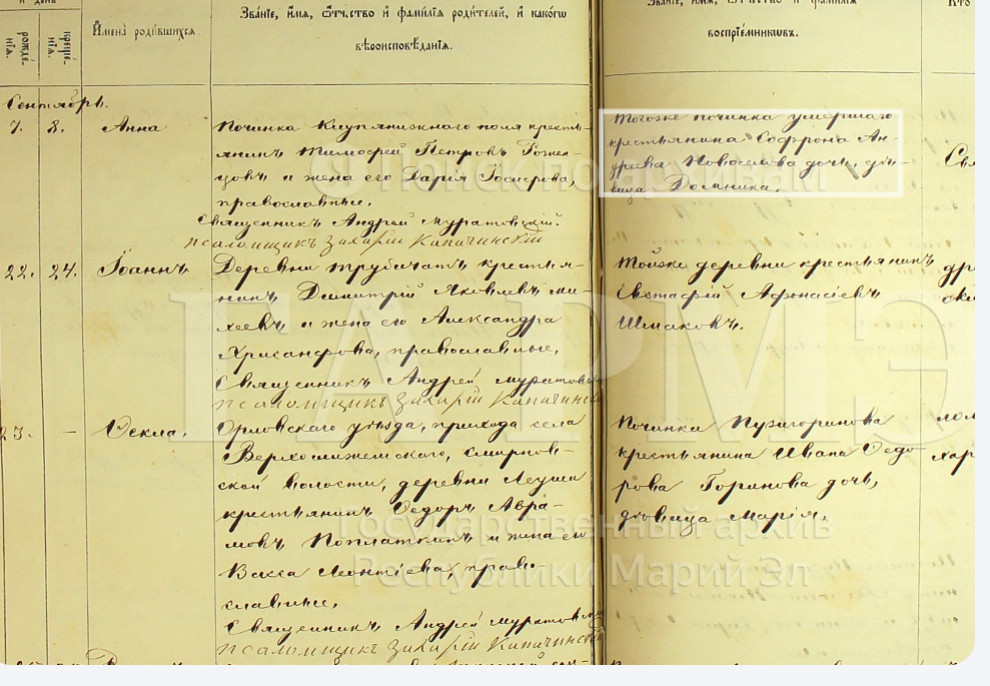 и день
рожде-
нія.
креще-
нія.
Имена родившихся.
Званіе, имя, отчество и фамилія родителей, и какого
вѣроисповѣданія.
Званіе, имя, отчество и фамилія
воспріемниковъ.
Кто
Сентябрь.
7. 8. Анна
Починка Купряни­жнаго поля кресть-
янинъ Тимофей Петровъ
и жена его Дарія
православные.
Священникъ Андрей Муратовскій.
псаломщикъ Захарій Капачинскій
Тогоже починка умершаго
крестьянина Софрона Ан-
дреева Новоселова дочь, дѣ-
вица Домника.
Свя
22. 24. Іоаннъ
Деревни Трубичатъ крестья-
нинъ Димитрій Яковлевъ Ми-
хеевъ и жена его Александра
Хрисанфова, православные,
Священникъ Андрей Муратовскій
псаломщикъ Захарій Капачинскій
Тойже деревни крестьянинъ
Евстафій Афонасіевъ
Шмаковъ.
23. — Ѳекла.
Орловскаго уѣзда, прихода села
Верхошижемскаго, Смирнов-
ской волости, деревни
крестьянинъ Ѳедоръ Авра-
мовъ Поплаткинъ и жена его
Васса Леонтіева, право-
славные,
Священникъ Андрей Муратовскій
псаломщикъ Захарій Капачинскій
Починка Пузигоринова
крестьянина Ивана Ѳедо-
рова Горинова дочь,
дѣвица Марія.
ГАРМЭ
Государственный архив
Республики Марий Эл